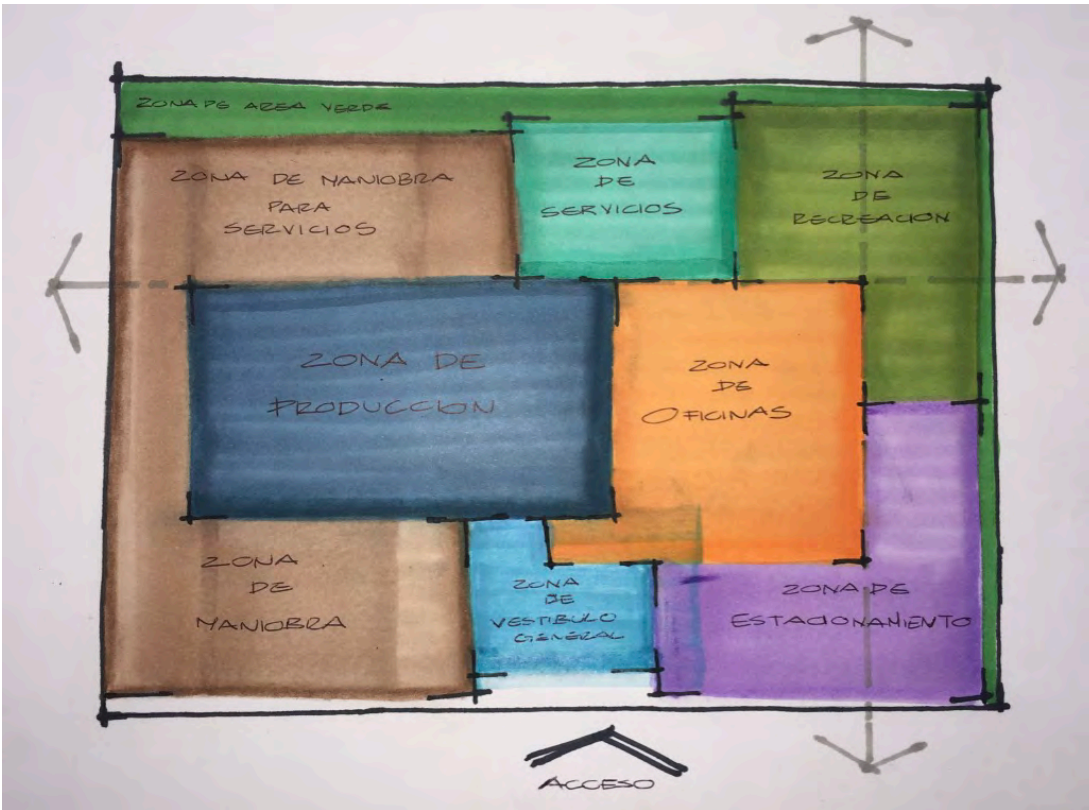 ZONA DE AREA VERDE
ZONA DE MANIOBRA
PARA
SERVICIOS
ZONA
DE
SERVICIOS
ZONA
DE
RECREACION
ZONA DE
PRODUCCION
ZONA
DE
OFICINAS
ZONA
DE
MANIOBRA
ZONA
DE
VESTIBULO
GENERAL
ZONA DE
ESTACIONAMIENTO
ACCESO